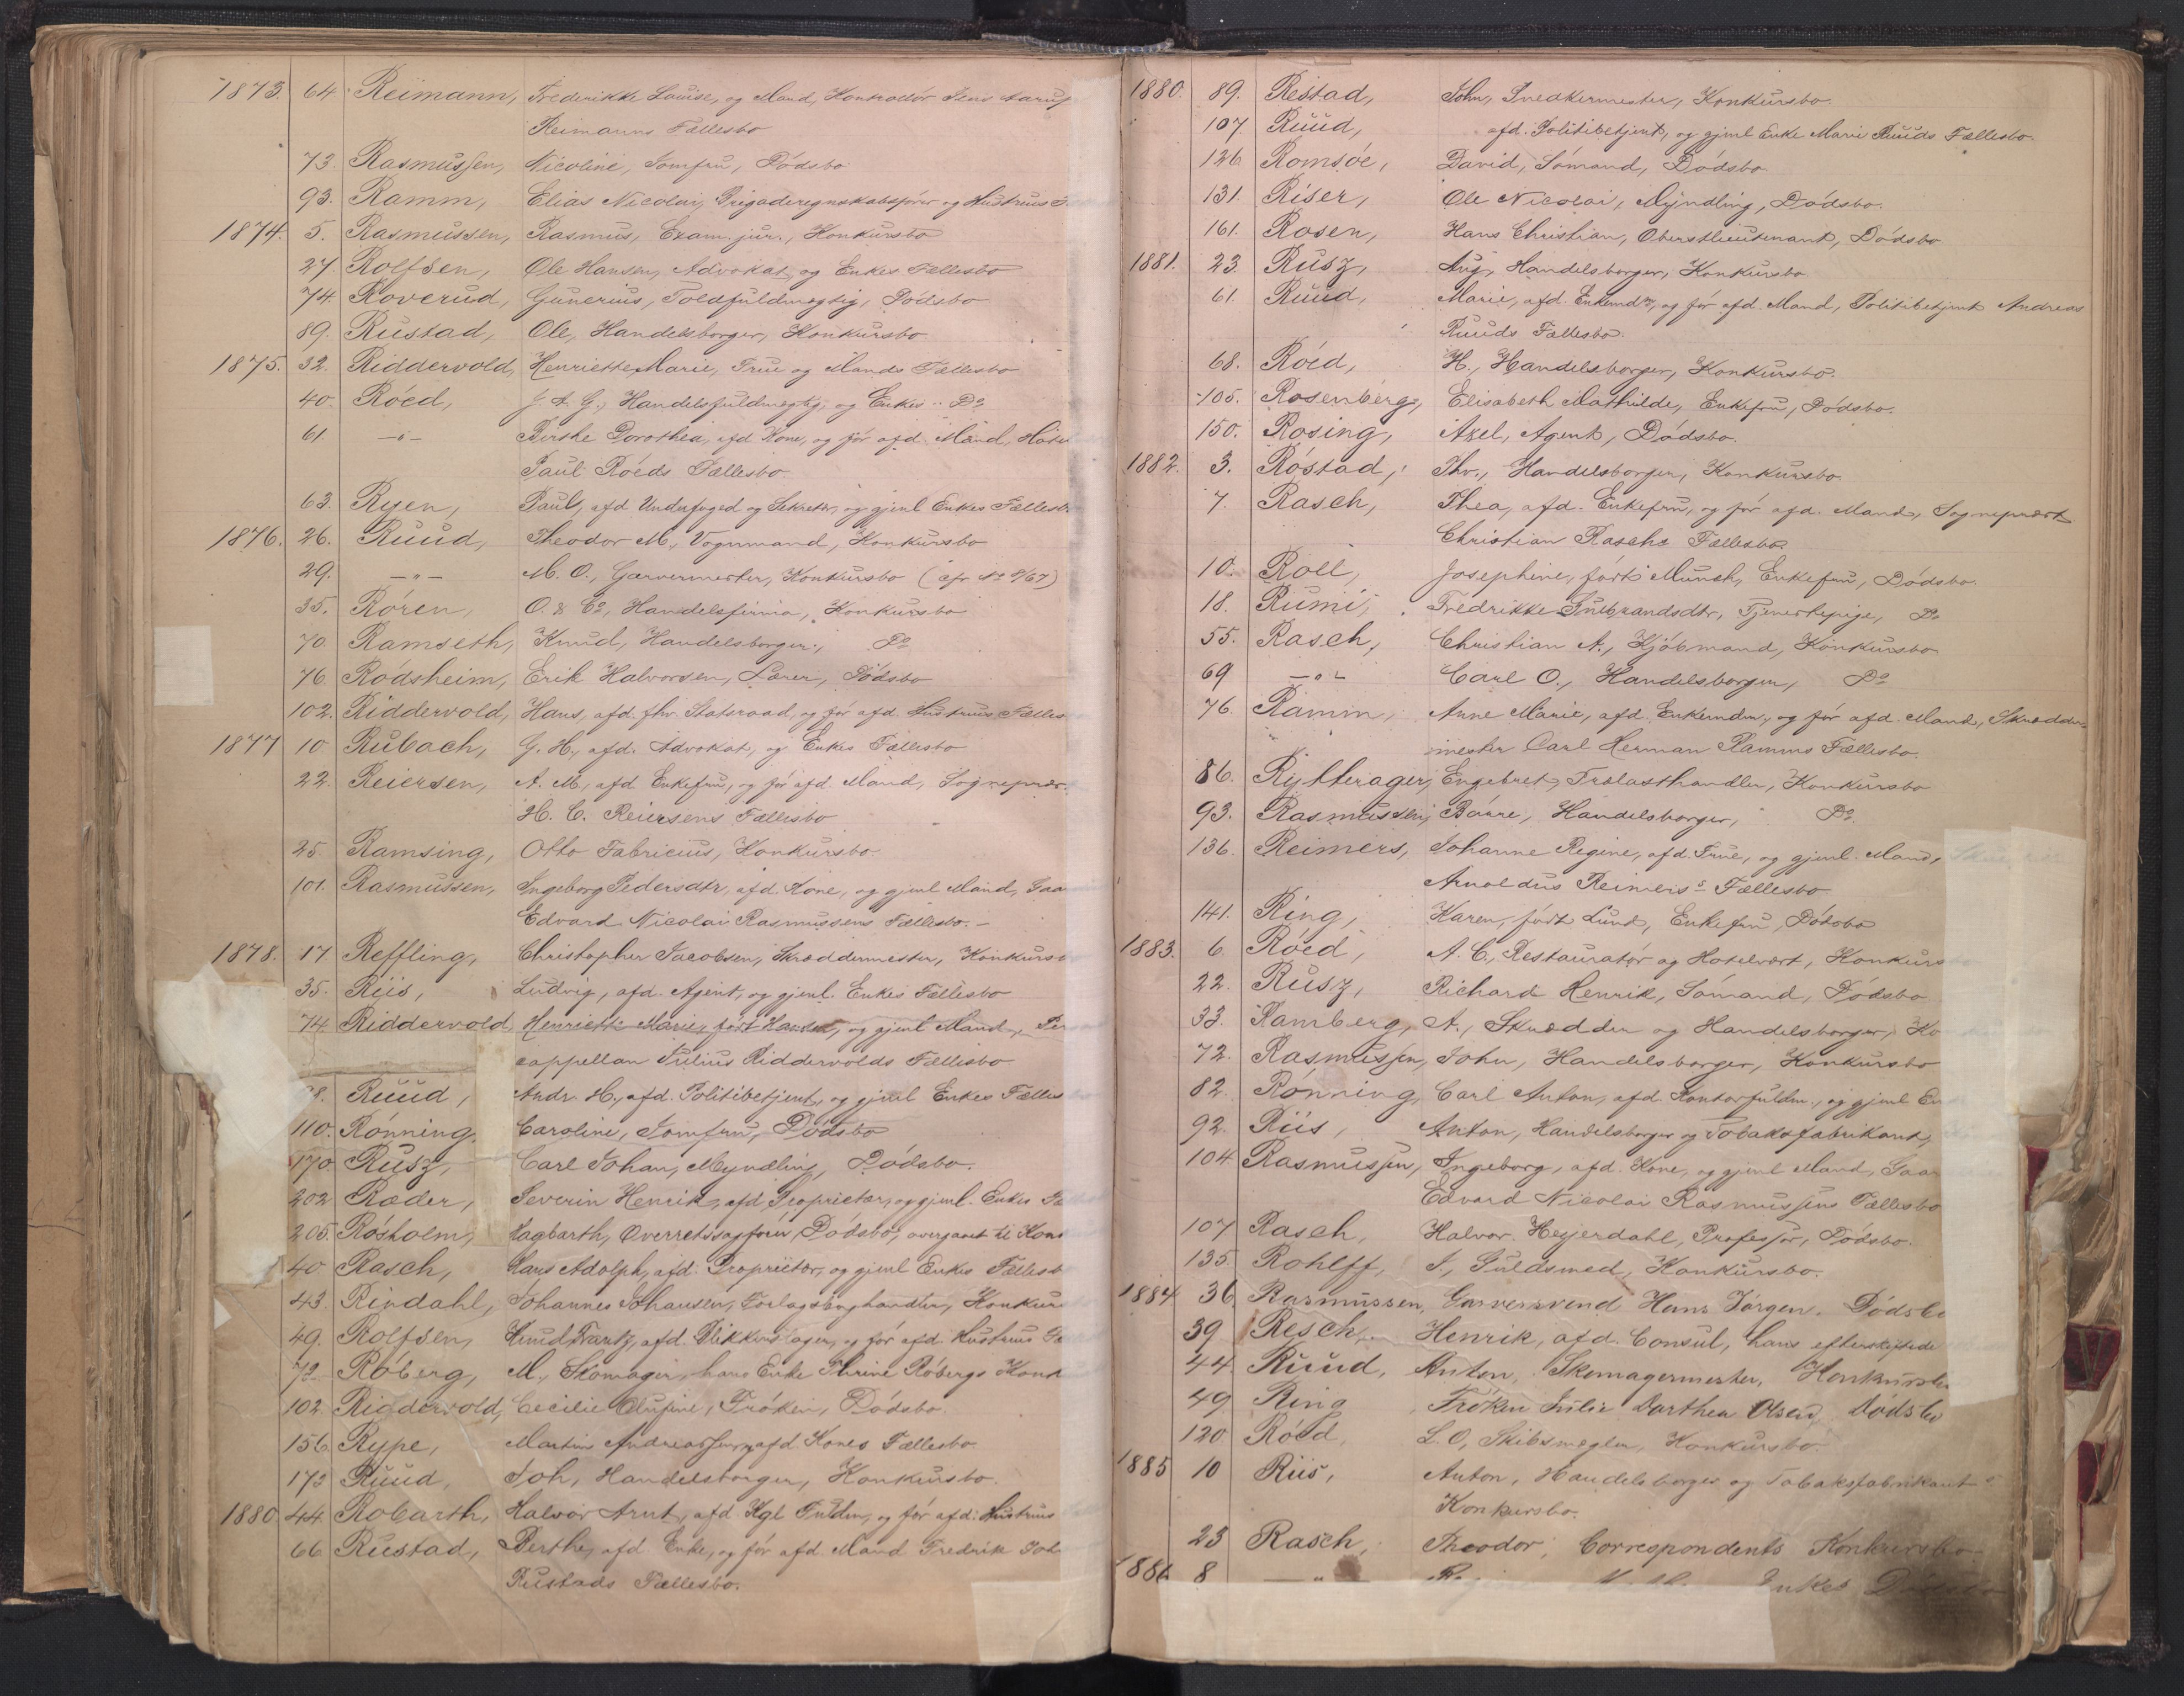 1873. 64 Reimann, Frederikke Louise, og Mand, Kontradør Jens Aarup
Reimanns Fællesbo
73. Rasmussen, Nicoline, Jomfru, Dödsbo
93. Ramm, Elias Nicolai, Brigaderegnskabsfører og Hustrues
1874. 5. Rasmussen, Rasmus, Exam. jur., Konkursbo
27. Rolfsen, Ole Hansen, Advokat, og Enkes Fællesbo
74. Roverud, Gunerius, Toldfuldmægtig, Dödsbo
89. Rustad, Ole, Handelsborger, Konkursbo
1875. 32. Riddervold, Henriette Marie, Frue og Mands Fællesbo
40. Röed, J. A. G., Handelsfuldmægtig, og Enkes " Do
61. —"— Birthe Dorothea, afd Kone, og før afd. Mand,
Paul Röeds Fællesbo.
63. Ryen, Paul, afd Underfoged og Sekretær, og gjenl Enkes Fællesb
1876. 26. Ruud, Theodor M., Vognmand, Konkursbo
29. —"— M. O., Garvermester, Konkursbo (cfr No 8/67)
35. Rören, O. & Co, Handelsfirma, Konkursbo
70. Ramseth, Knud, Handelsborger, Do
76. Rödsheim, Erik Halvorsen, Lærer, Dödsbo
102. Riddervold, Hans, afd. fhv. Statsraad, og før afd. Hustrues Fælles
1877 10. Rubach, G. H., afd. Advokat, og Enkes Fællesbo
22. Reiersen, A. M., afd Enkefru, og før afd. Mand, Sognepræs
H. C. Reiersens Fællesbo
25. Ramsing, Otto Fabricius, Konkursbo
101. Rasmussen, Ingeborg Pedersdtr, afd. Kone, og gjenl Mand, Gaa
Edvard Nicolai Rasmussens Fællesbo.—
1878. 17 Reffling, Christopher Jacobsen, Skræddermester, Konkurs
35. Riis, Ludvig, afd. Agent, og gjenl. Enkes Fællesbo
74. Riddervold Henriette Marie, født Hansen, og gjenl Mand, Per
cappellan Julius Riddervolds Fællesbo
8. Ruud, Andr. H., afd. Politibetjent, og gjenl Enkes Fælles
110. Rönning, Caroline, Jomfru, Dödsbo
170. Rusz, Carl Johan, Myndling, Dödsbo.
202 Ræder, Severin Henrik, afd Proprietær, og gjenl. Enkes Fæ
205. Rösholm, Hagbarth, Overretssagfører, Dödsbo, overgaaet til Kon
40 Rasch, Lars Adolph, afd. Proprietær, og gjenl Enkes Fællesb
43. Rindahl, Johannes Johansen, Forlagsboghandler, Konkurs
49. Rolfsen, Knud Frantz, afd. Blikkenslager, og før afd. Hustrues
72. Röberg, M., Skomager, hans Enke Thrine Röbergs Konk
102. Riddervold, Cecilie Olufine, Fröken, Dödsbo.
156. Rype, Martin Andreassens afd. Kones Fællesbo.
173 Ruud, Joh, Handelsborger, Konkursbo.
1880 44. Robarth, Halvor Arnt, afd. Kgl Fuldm, og før afd. Hustrues
66 Rustad, Berthe, afd. Enke, og før afd. Mand Fredrik Joh
Rustads Fællesbo.
1880. 89. Restad, John, Snedkermester, Konkursbo.
107 Ruud, afd. Politibetjent, og gjenl Enke Marie Ruuds Fællesbo.
126. Romsöe, David, Sömand, Dödsbo
131. Riser, Ole Nicolai, Myndling, Dödsbo.
161. Rosen, Hans Christian, Oberstlieutenant, Dödsbo
1881. 23. Rusz, Aug, Handelsborger, Konkursbo
61. Ruud, Marie, afd. Enkemdm, og før afd. Mand, Politibetjent Andreas
Ruuds Fællesbo.
68. Röed, H., Handelsborger, Konkursbo.
105. Rosenberg, Elisabeth Mathilde, Enkefru, Dödsbo.
150. Rosing, Axel, Agent, Dödsbo.
1882. 3. Röstad, Thr., Handelsborger, Konkursbo
7. Rasch, Thea, afd. Enkefru, og før afd. Mand, Sognepræst
Christian Raschs Fællesbo.
10. Roll, Josephine, født Munch, Enkefru, Dödsbo.
18. Rumi, Fredrikke Gulbrandsdtr, Tjenestepige, Do
55. Rasch, Christian A., Kjöbmand, Konkursbo
69 —"— Carl O., Handelsborger, Do
76. Ramm, Anne Marie, afd. Enkemdm., og før afd. Mand, Skrædder-
mester Carl Herman Ramms Fællesbo.
86. Rytterager, Engebret, Trælasthandler, Konkursbo
93. Rasmussen, Baare, Handelsborger, Do.
136. Reimers, Johanne Regine, afd. Frue, og gjenl. Mand,
Arnoldus Reimers's Fællesbo
141. Ring, Karen, født Lund, Enkefru, Dödsbo
1883. 6. Röed, A. C., Restauratör og Hotelvært, Konkurs
22. Rusz, Richard Henrik, Sömand, Dödsbo
33. Ramberg, A., Skrædder og Handelsborger, Ko
72. Rasmussen, John, Handelsborger, Konkursbo
82. Rönning, Carl Anton, afd. Kontorfuldm., og gjenl En
92. Riis, Anton, Handelsborger og Tobaksfabrikant,
104 Rasmussen, Ingeborg, afd. Kone, og gjenl Mand, Gaar
Edvard Nicolai Rasmussens Fællesbo
107 Rasch, Halvor Heyerdahl, Professor, Dödsbo.
135. Rohlff, J, Guldsmed, Konkursbo.
1884 36. Rasmussen, Garversvend Hans Jörgen. Dödsbo
39 Resch, Henrik, afd. Consul, hans efterskiftede
44. Ruud, Anton, Skomagermester, Konkursbo
49 Ring Fröken Julie Dorthea Olsen, Dödsbo
120 Röed, L. O, Skibsmægler, Konkursbo.
1885 10 Riis, Anton, Handelsborger og Tobaksfabrikant
Konkursbo.
23 Rasch, Theodor, Correspondents Konkursbo
1886. 8 —"— Enkes